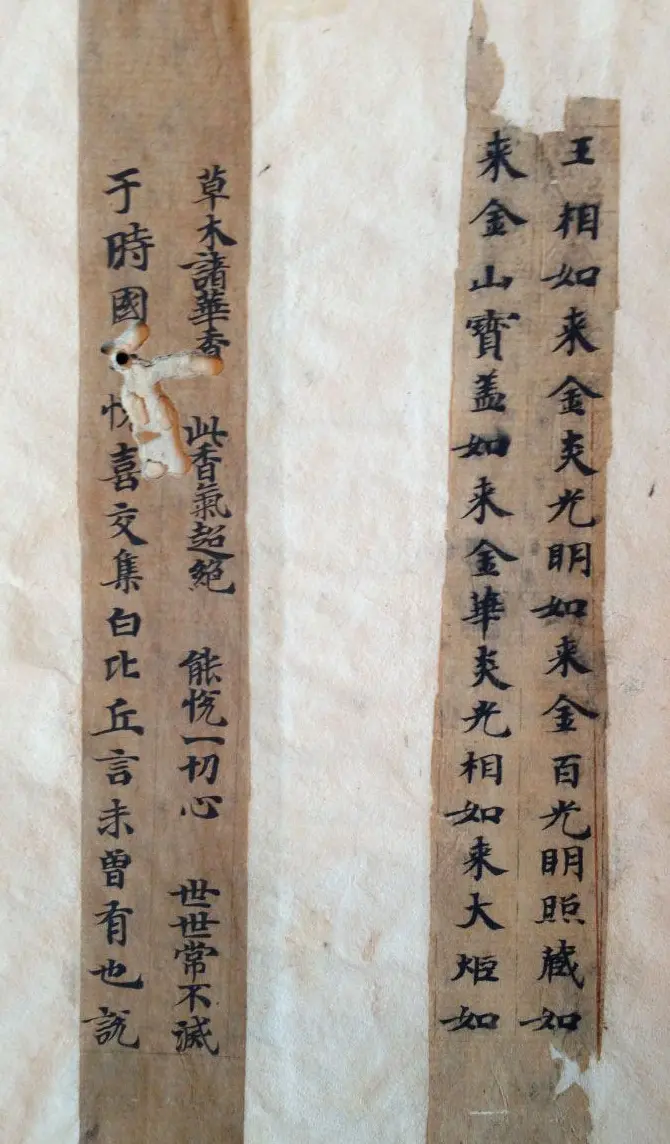 王相如来金炎光明如来金百光明照藏如
来金山寶盖如来金華炎光相如来大炬如
草木諸華香 此香氣超絕 能悅一切心 世世常不滅
于時國 悅喜交集白比丘言未曾有也說